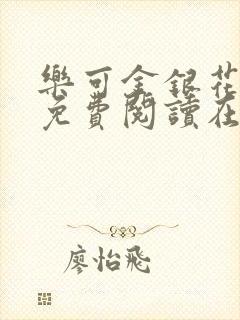 樂可金銀花
免費閱讀在
廖怡飛